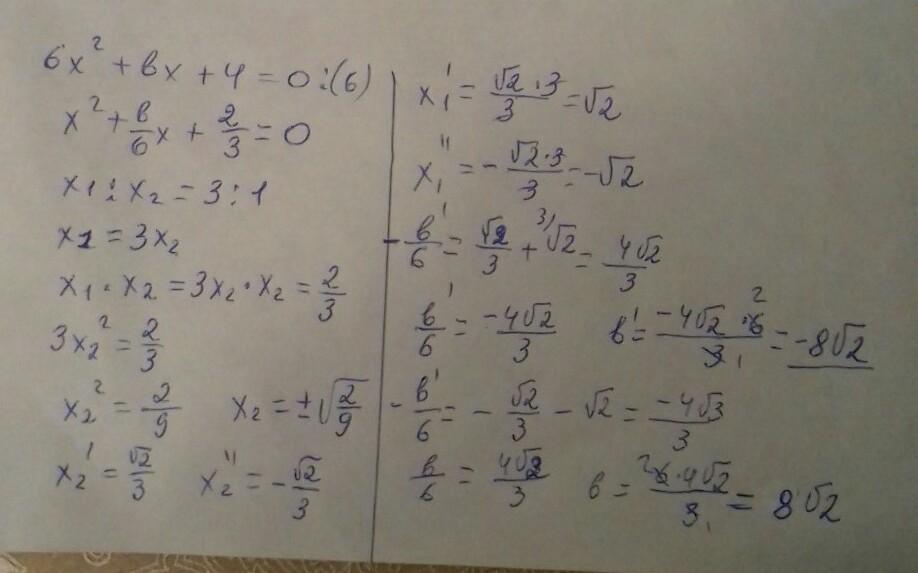 6x² + bx + 4 = 0 :(6)
x² + b/6 x + 2/3 = 0
x₁ : x₂ = 3 : 1
x₁ = 3x₂
x₁ · x₂ = 3x₂ · x₂ = 2/3
3x₂² = 2/3
x₂² = 2/9 x₂ = ±√(2/9)
x₂' = √2/3 x₂'' = -√2/3
x₁' = √2·3/3 = √2
x₁'' = -√2·3/3 = -√2
-b'/6 = √2/3 + ³⁾√2 = 4√2/3
b'/6 = -4√2/3 b' = -4√2·6²/3₁ = -8√2
-b'/6 = -√2/3 - √2 = -4√3/3
b/6 = 4√2/3 b = ²6·4√2/3₁ = 8√2